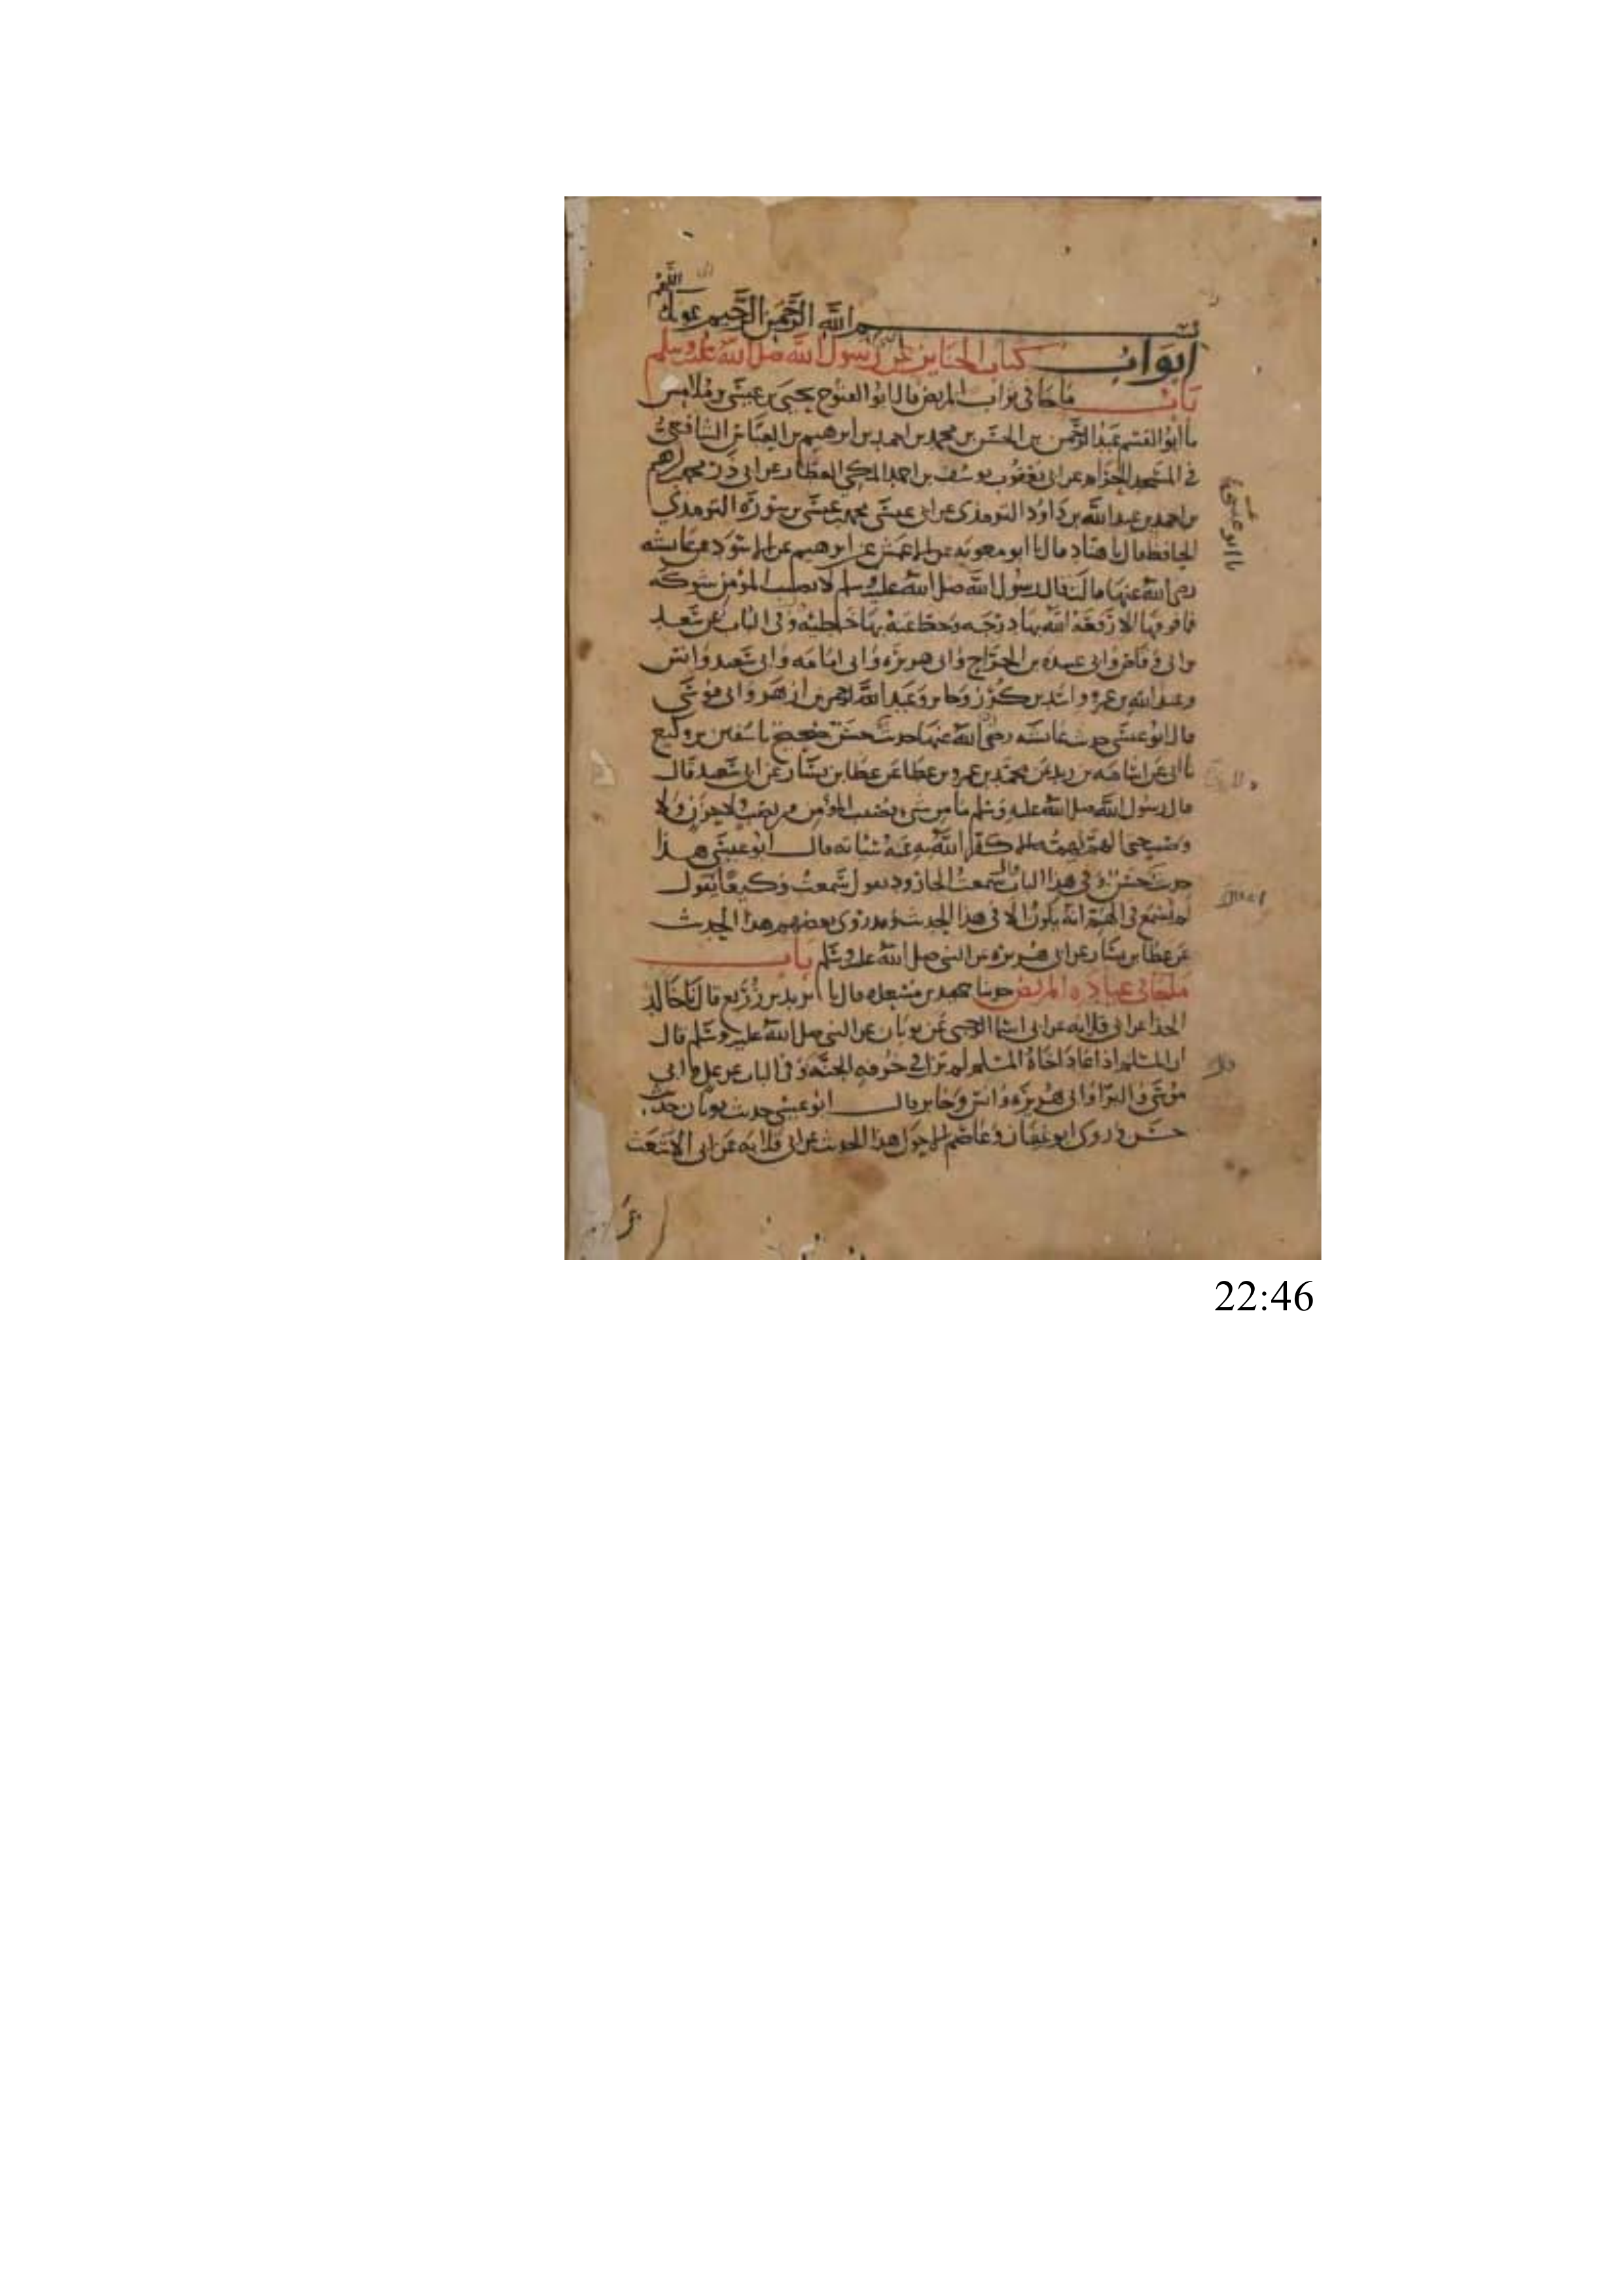 اللهم
بسم الله الرحمن الرحيم عونك
ابواب كتاب الجنايز عن رسول الله صلى الله عليه وسلم
باب ما جا في ثواب المريض قال ابو الفتوح يحيى بن عيسى بن ملامس
نا ابو القسم عبد الرحمن بن الحسن بن محمد بن احمد بن ابرهيم بن العباس الشافعي
في المسجد الحرام عن ابي يعقوب يوسف بن احمد المكي العطار عن ابي ذر محمد بن ابرهيم
بن احمد بن عبد الله بن داود الترمذي عن ابي عيسى محمد بن عيسى بن سورة الترمذي
الحافظ قال نا هناد قال نا ابو معوية عن الاعمش عن ابرهيم عن الاسود عن عايشه
رضي الله عنها قالت قال رسول الله صلى الله عليه وسلم لا يصيب المؤمن شوكه
فما فوقها الا رفعه الله بها درجه وحط عنه بها خطيئه وفي الباب عن سعد
بن ابي وقاص وابي عبيده بن الجراح وابي هريره وابي امامه وابي سعيد وانس
وعبد الله بن عمرو واسد بن كرز وجابر وعبد الرحمن بن ازهر وابي موسى
قال ابو عيسى حديث عايشه رضي الله عنها حديث حسن صحيح نا سفين بن وكيع
نا ابي عن اسامه بن زيد عن محمد بن عمرو بن عطا عن عطا بن يسار عن ابي سعيد قال
قال رسول الله صلى الله عليه وسلم ما من شيء يصيب المؤمن من نصب ولا حزن ولا
وصب حتى الهم يهمه الا كفر الله به عنه سياته قال ابو عيسى هذا
حديث حسن في هذا الباب قال سمعت الجارود يقول سمعت وكيعا يقول
لم يسمع في الهم انه يكون الا في هذا الحديث وقد روى بعضهم هذا الحديث
عن عطا بن يسار عن ابي هريره عن النبي صلى الله عليه وسلم باب
ما جا في عيادة المريض حدثنا حميد بن مسعده قال نا يزيد بن زريع قال نا خالد
الحذا عن ابي قلابه عن ابي اسما الرحبي عن ثوبان عن النبي صلى الله عليه وسلم قال
ان المسلم اذا عاد اخاه المسلم لم يزل في خرفه الجنه وفي الباب عن علي وابي
موسى والبرا وابي هريره وانس وجابر قال ابو عيسى حديث ثوبان حديث
حسن وروى ابو غفار وعاصم الاحول هذا الحديث عن ابي قلابه عن ابي الاشعث
نا ابو عيسى
22:46